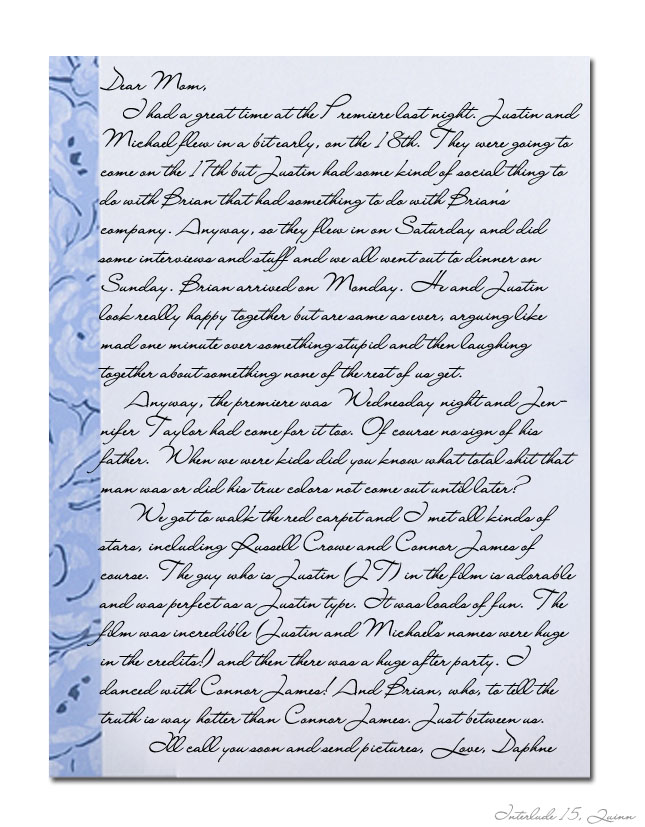 Dear Mom,
I had a great time at the Premiere last night. Justin and
Michael flew in a bit early, on the 18th. They were going to
come on the 17th but Justin had some kind of social thing to
do with Brian that had something to do with Brian's
company. Anyway, so they flew in on Saturday and did
some interviews and stuff and we all went out to dinner on
Sunday. Brian arrived on Monday. He and Justin
look really happy together but are same as ever, arguing like
mad one minute over something stupid and then laughing
together about something none of the rest of us get.
Anyway, the premiere was Wednesday night and Jen-
nifer Taylor had come for it too. Of course no sign of his
father. When we were kids did you know what total shit that
man was or did his true colors not come out until later?
We got to walk the red carpet and I met all kinds of
stars, including Russell Crowe and Connor James of
course. The guy who is Justin (JT) in the film is adorable
and was perfect as a Justin type. It was loads of fun. The
film was incredible (Justin and Michael's names were huge
in the credits!) and then there was a huge after party. I
danced with Connor James! And Brian, who, to tell the
truth is way hotter than Connor James. Just between us.
I'll call you soon and send pictures, Love, Daphne
Interlude 15, Quinn